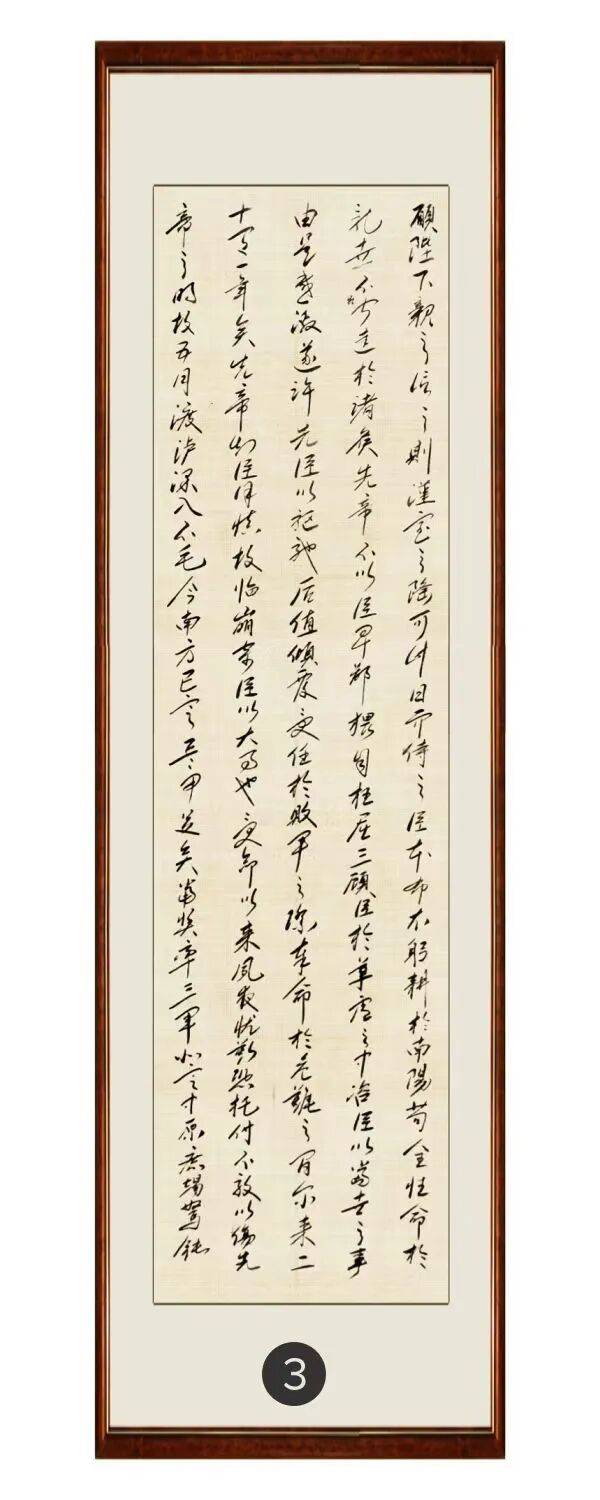 願陛下親之信之則漢室之隆可計日而待之臣本布衣躬耕於南陽苟全性命於
亂世不求聞達於諸侯先帝不以臣卑鄙猥自枉屈三顧臣於草廬之中咨臣以當世之事
由是感激遂许先臣以驱驰后值傾覆受任於敗軍之際奉命於危難之間尔来二
十有一年矣先帝知臣谨慎故临崩寄臣以大事也受命以来夙夜忧歎恐托付不效以傷先
帝之明故五月渡泸深入不毛今南方已定兵甲足矣當奖率三軍北定中原庶竭駑鈍
3